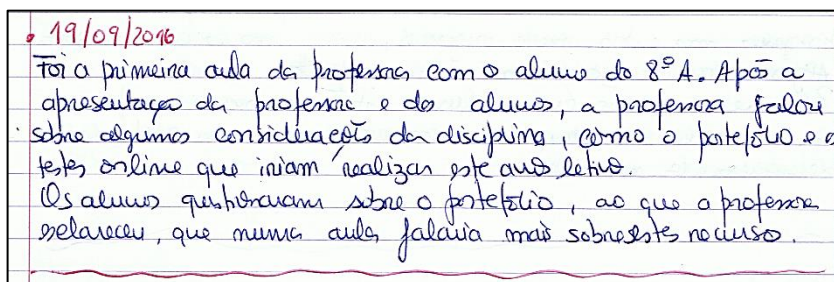 • 19/09/2016
Foi a primeira aula da professora com o aluno do 8º A. Após a
apresentação da professora e do alunos, a professora falou
sobre algumas considerações da disciplina, como o portefólio e o
testes online que iriam realizar este ano letivo.
Os alunos questionaram sobre o portefólio, ao que a professora
esclareceu, que numa aula falaria mais sobre este recurso.